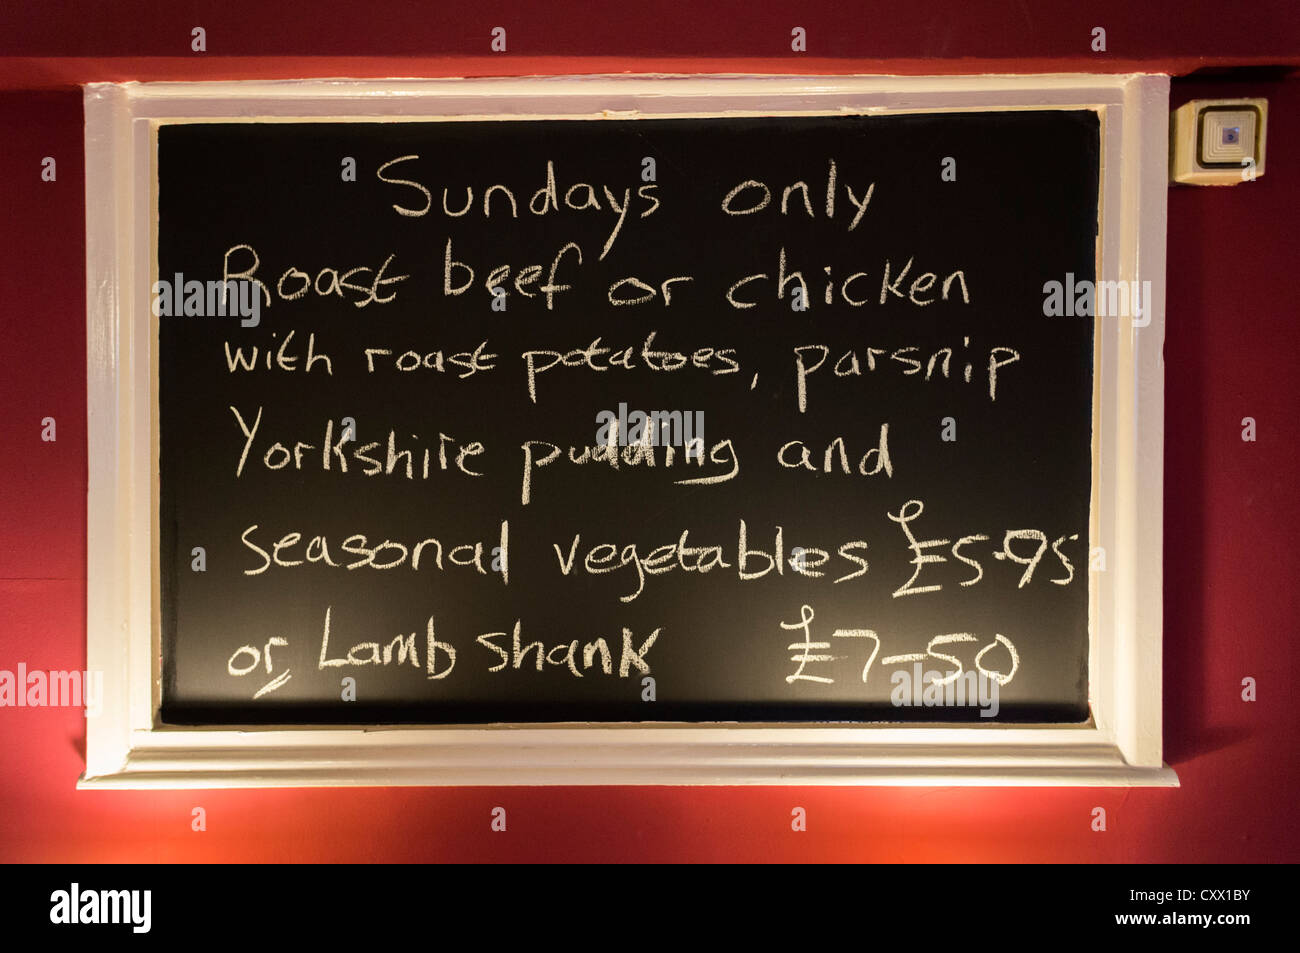 Sundays only
Roast beef or chicken
with roast potatoes, parsnip
Yorkshire pudding and
seasonal vegetables £5-95
or Lamb shank £7-50
alamy
alamy
alamy
a a a a
a a a
a a a
a a a
a a a
a a a a
alamy
Image ID: CXX1BY
www.alamy.com